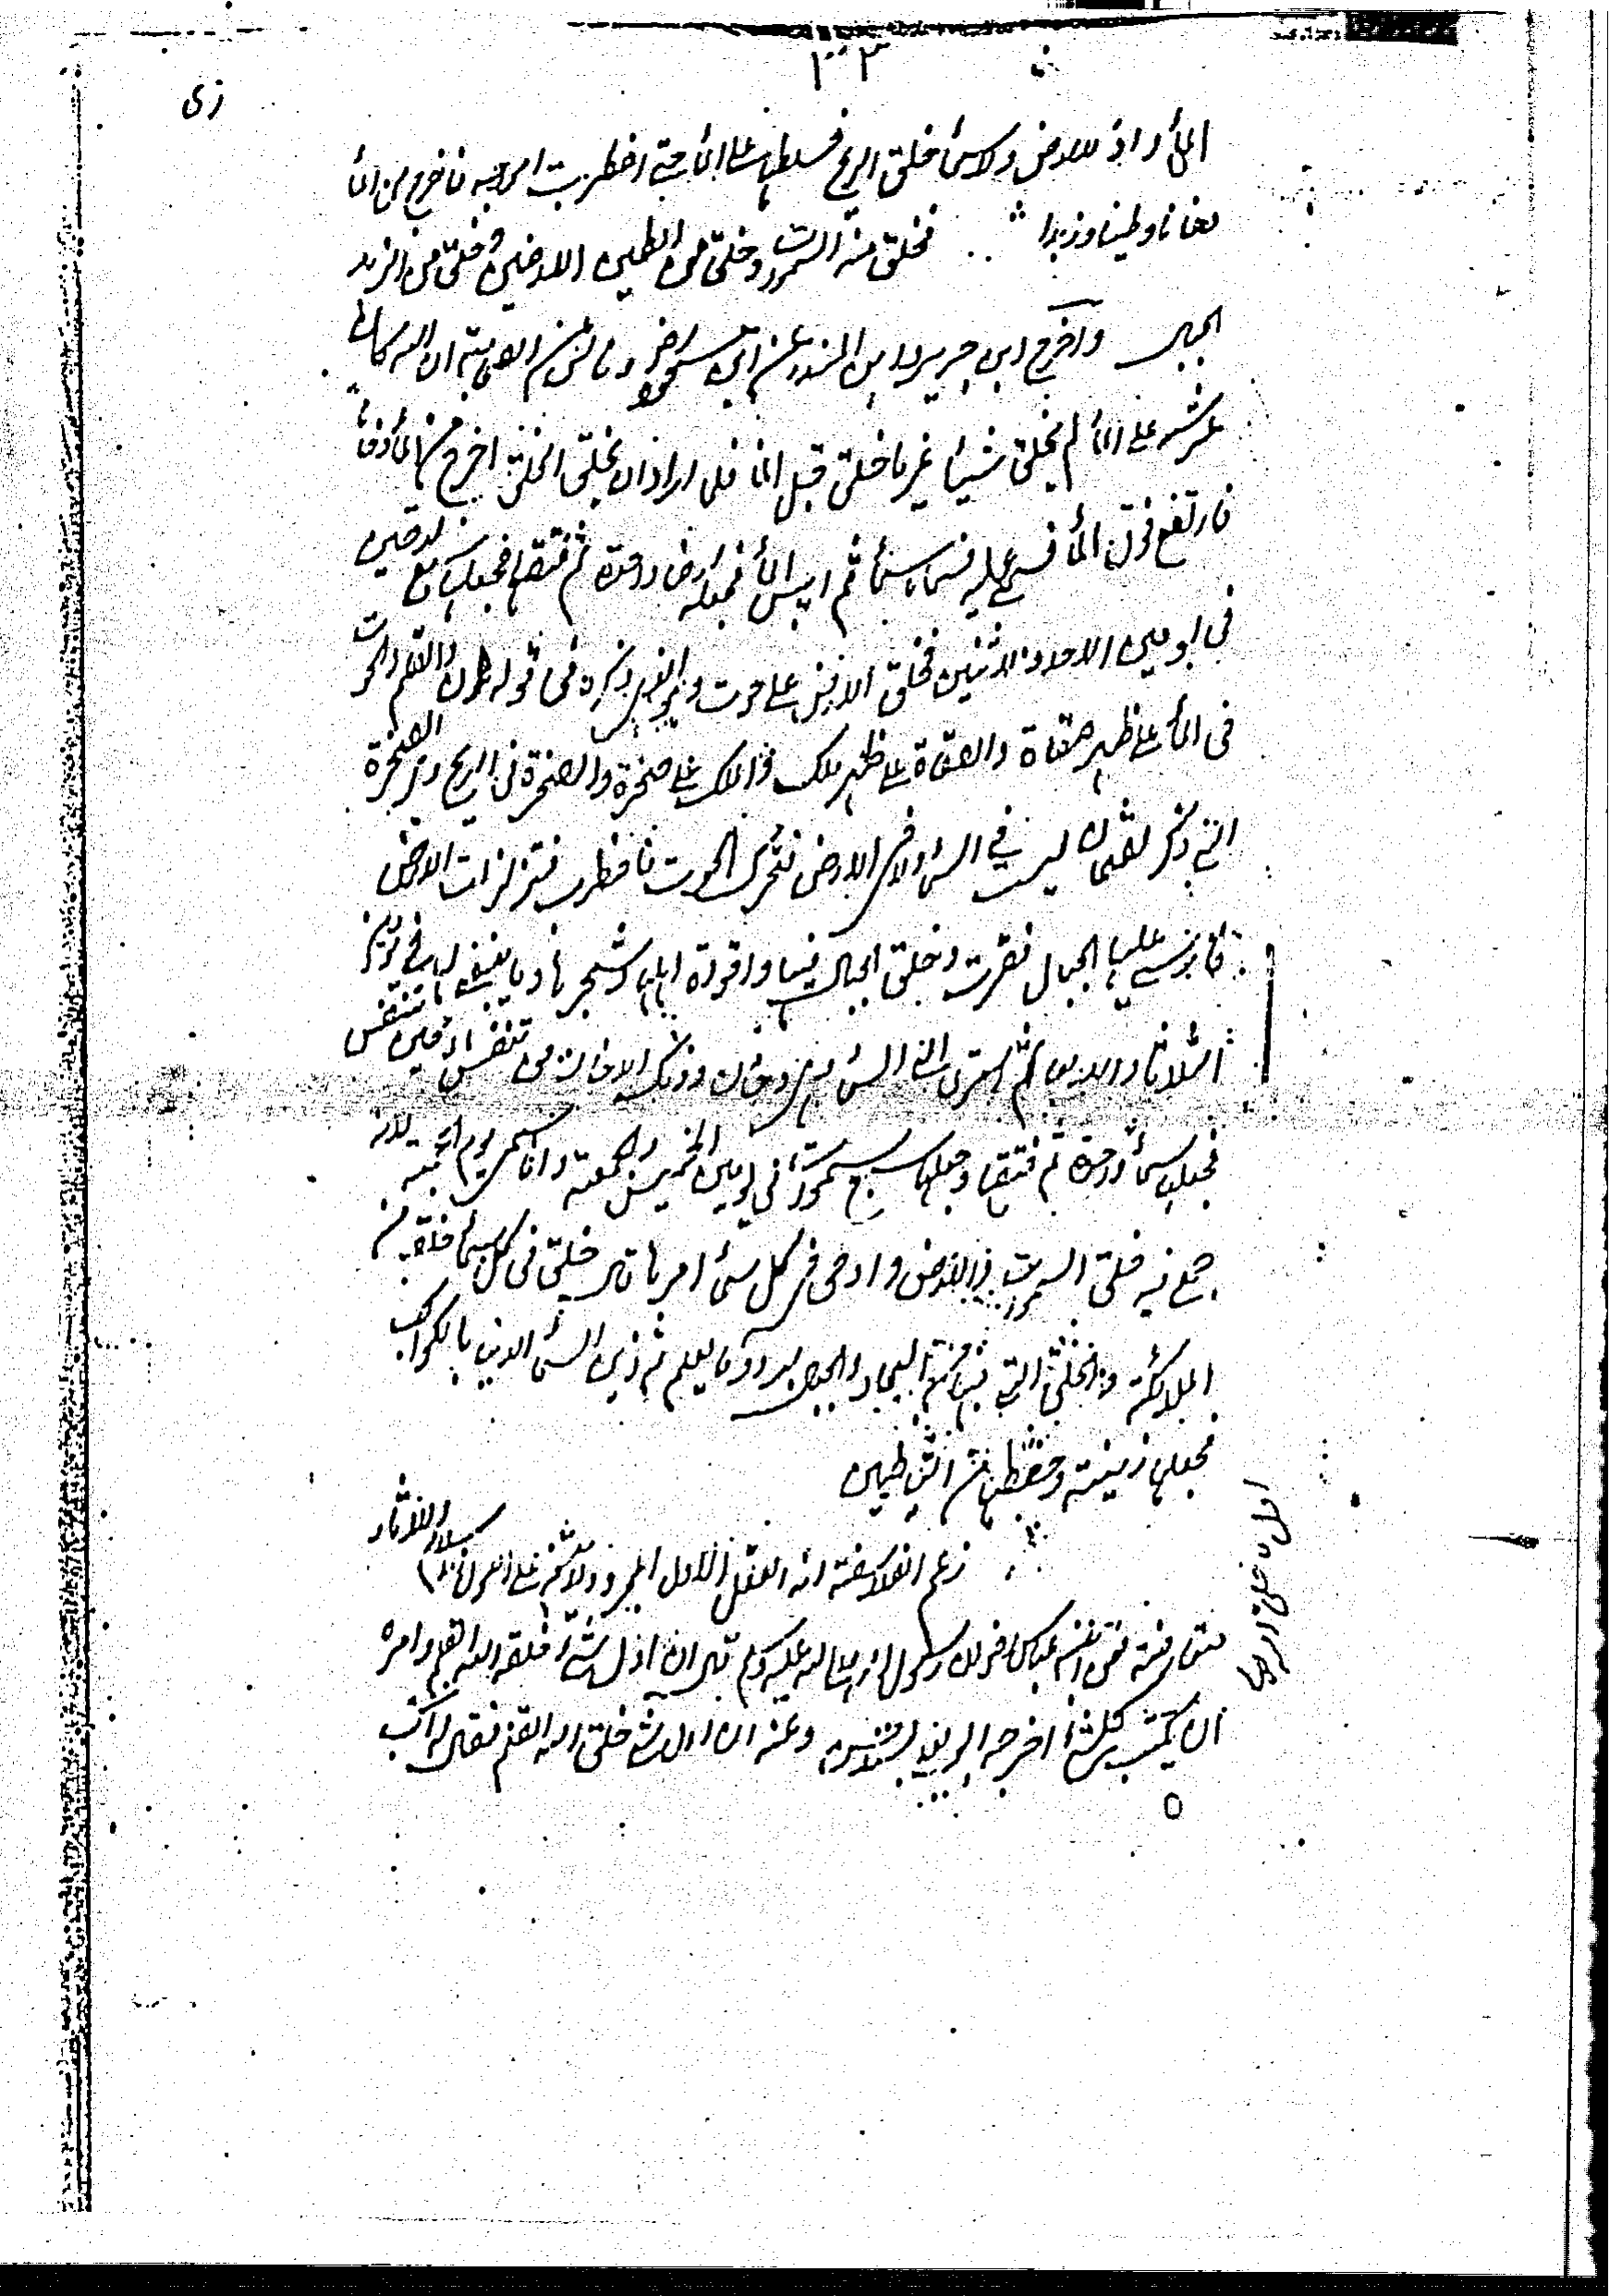 ٣٣
زى
الماء اذ لا ارض ولا سماء خلق الريح فسلطها على الماء حتى اضطربت امواجه فاخرج من الماء
دخانا وطينا وزبدا فخلق منه السموات وخلق من الطين الارضين وخلق من الزبد
الجبال واخرج ابن جرير وابن المنذر عن ابن مسعود وناس من الصحابة ان الله كان
عرشه على الماء لم يخلق شيئا غير ما خلق قبل الماء فلما اراد ان يخلق الخلق اخرج من الماء دخانا
فارتفع فوق الماء فسما عليه فسماه سماء ثم ايبس الماء فجعله ارضا واحدة ثم فتقها فجعلها سبع ارضين
فى يومين الاحد والاثنين فخلق الارض على حوت وهو الذى ذكره فى قوله ن والقلم والحوت
فى الماء على ظهر صفاة والصفاة على ظهر ملك والملك على صخرة والصخرة فى الريح وهى الصخرة
التى ذكر لقمان ليست فى السماء ولا فى الارض فتحرك الحوت فاضطرب فتزلزلت الارض
فارسى عليها الجبال فقرت وخلق الجبال فيها واقوات اهلها وشجرها وما ينبغى لها فى يومين
الثلاثاء والاربعاء ثم استوى الى السماء وهى دخان وذلك الدخان من تنفس الماء حين تنفس
فجعلها سماء واحدة ثم فتقها وجعلها سبع سموات فى يومين الخميس والجمعة وانما سمى يوم الجمعة لانه
جمع فيه خلق السموات والارض واوحى فى كل سماء امرها قال خلق فى كل سماء خلقها من
الملائكة والخلق التى فيها من البحار والجبال البرد وما لا يعلم ثم زين السماء الدنيا بالكواكب
فجعلها زينة وحفظا من الشياطين
زعم الفلاسفة انه العقل الاول والاثار
اول ما خلق الله
متعارضة فعن ابن عباس ان رسول الله صلى الله عليه وسلم قال ان اول شئ خلقه الله القلم وامره
ان يكتب كل شئ اخرجه وعنه ان اول شئ خلق الله القلم فقال له اكتب